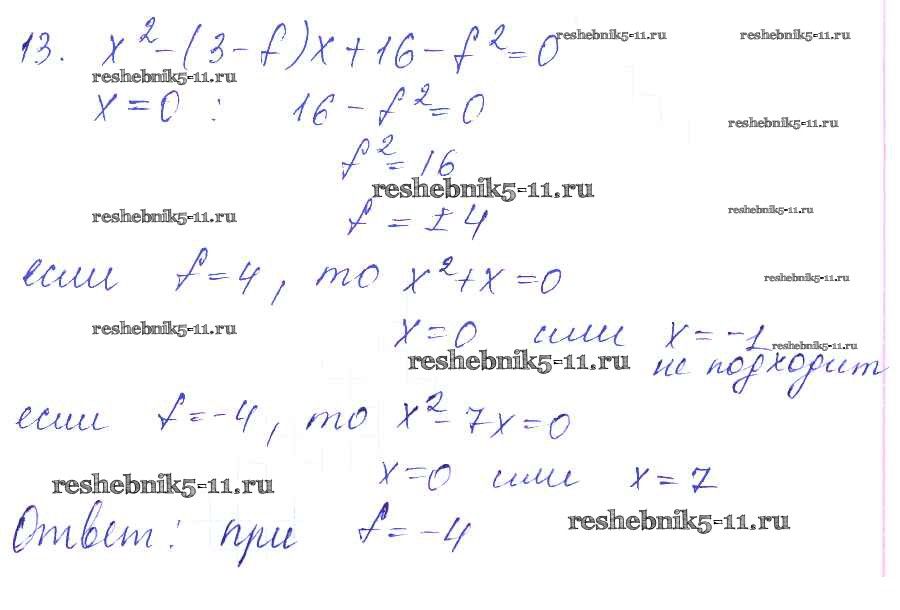 13. x² – (3 – f)x + 16 – f² = 0 reshebnik5-11.ru reshebnik5-11.ru
reshebnik5-11.ru
x = 0 : 16 – f² = 0 reshebnik5-11.ru
f² = 16
reshebnik5-11.ru
reshebnik5-11.ru f = ±4 reshebnik5-11.ru
если f = 4, то x² + x = 0 reshebnik5-11.ru
reshebnik5-11.ru x = 0 или x = -1 reshebnik5-11.ru
reshebnik5-11.ru не подходит
если f = -4, то x² – 7x = 0
reshebnik5-11.ru x = 0 или x = 7
Ответ: при f = -4 reshebnik5-11.ru